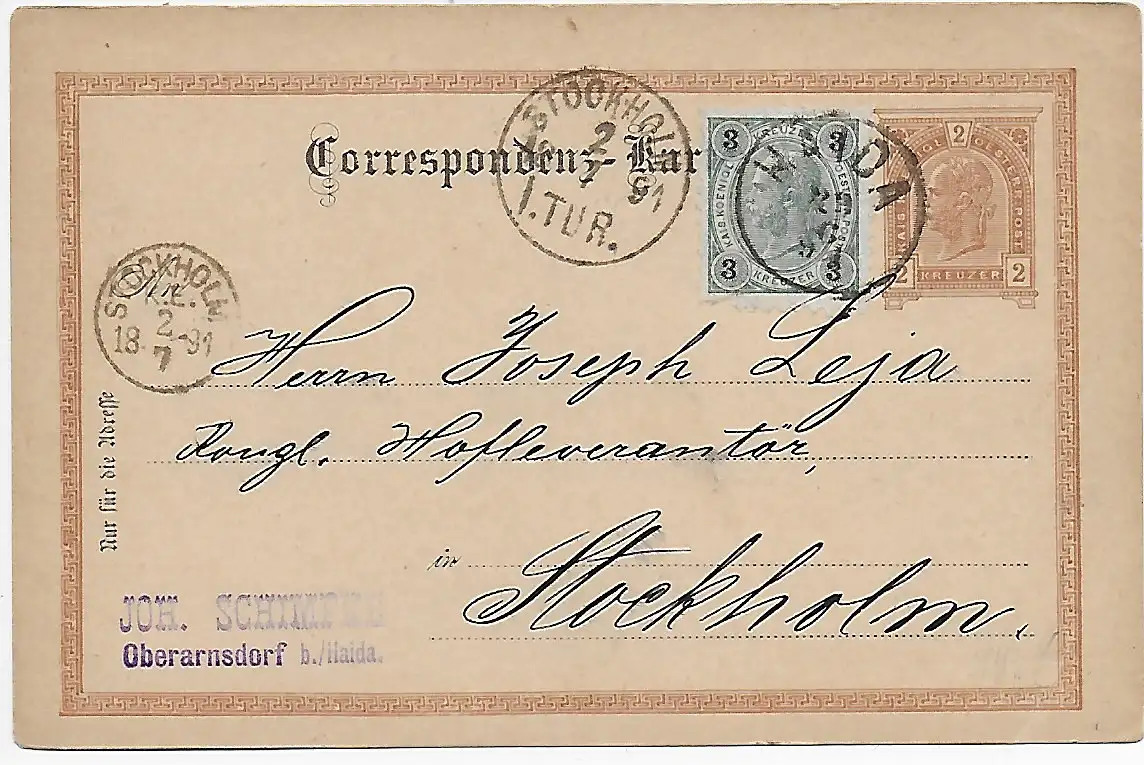 Correspondenz-Kar
STOCKHOL
2
7
91
1. TUR.
3 KREUZER 3
KAIS. KOENIGL. OESTERR. POST
3 KREUZER 3
HAIDA
2
KAIS. KOENIGL. OESTERR. POST
2 KREUZER 2
STOCKHOLM
2
18 91
7
Nur für die Adresse
Herrn Joseph Leja
Kongl. Hofleverantör,
in Stockholm.
JOH.
Oberarnsdorf b./Haida.